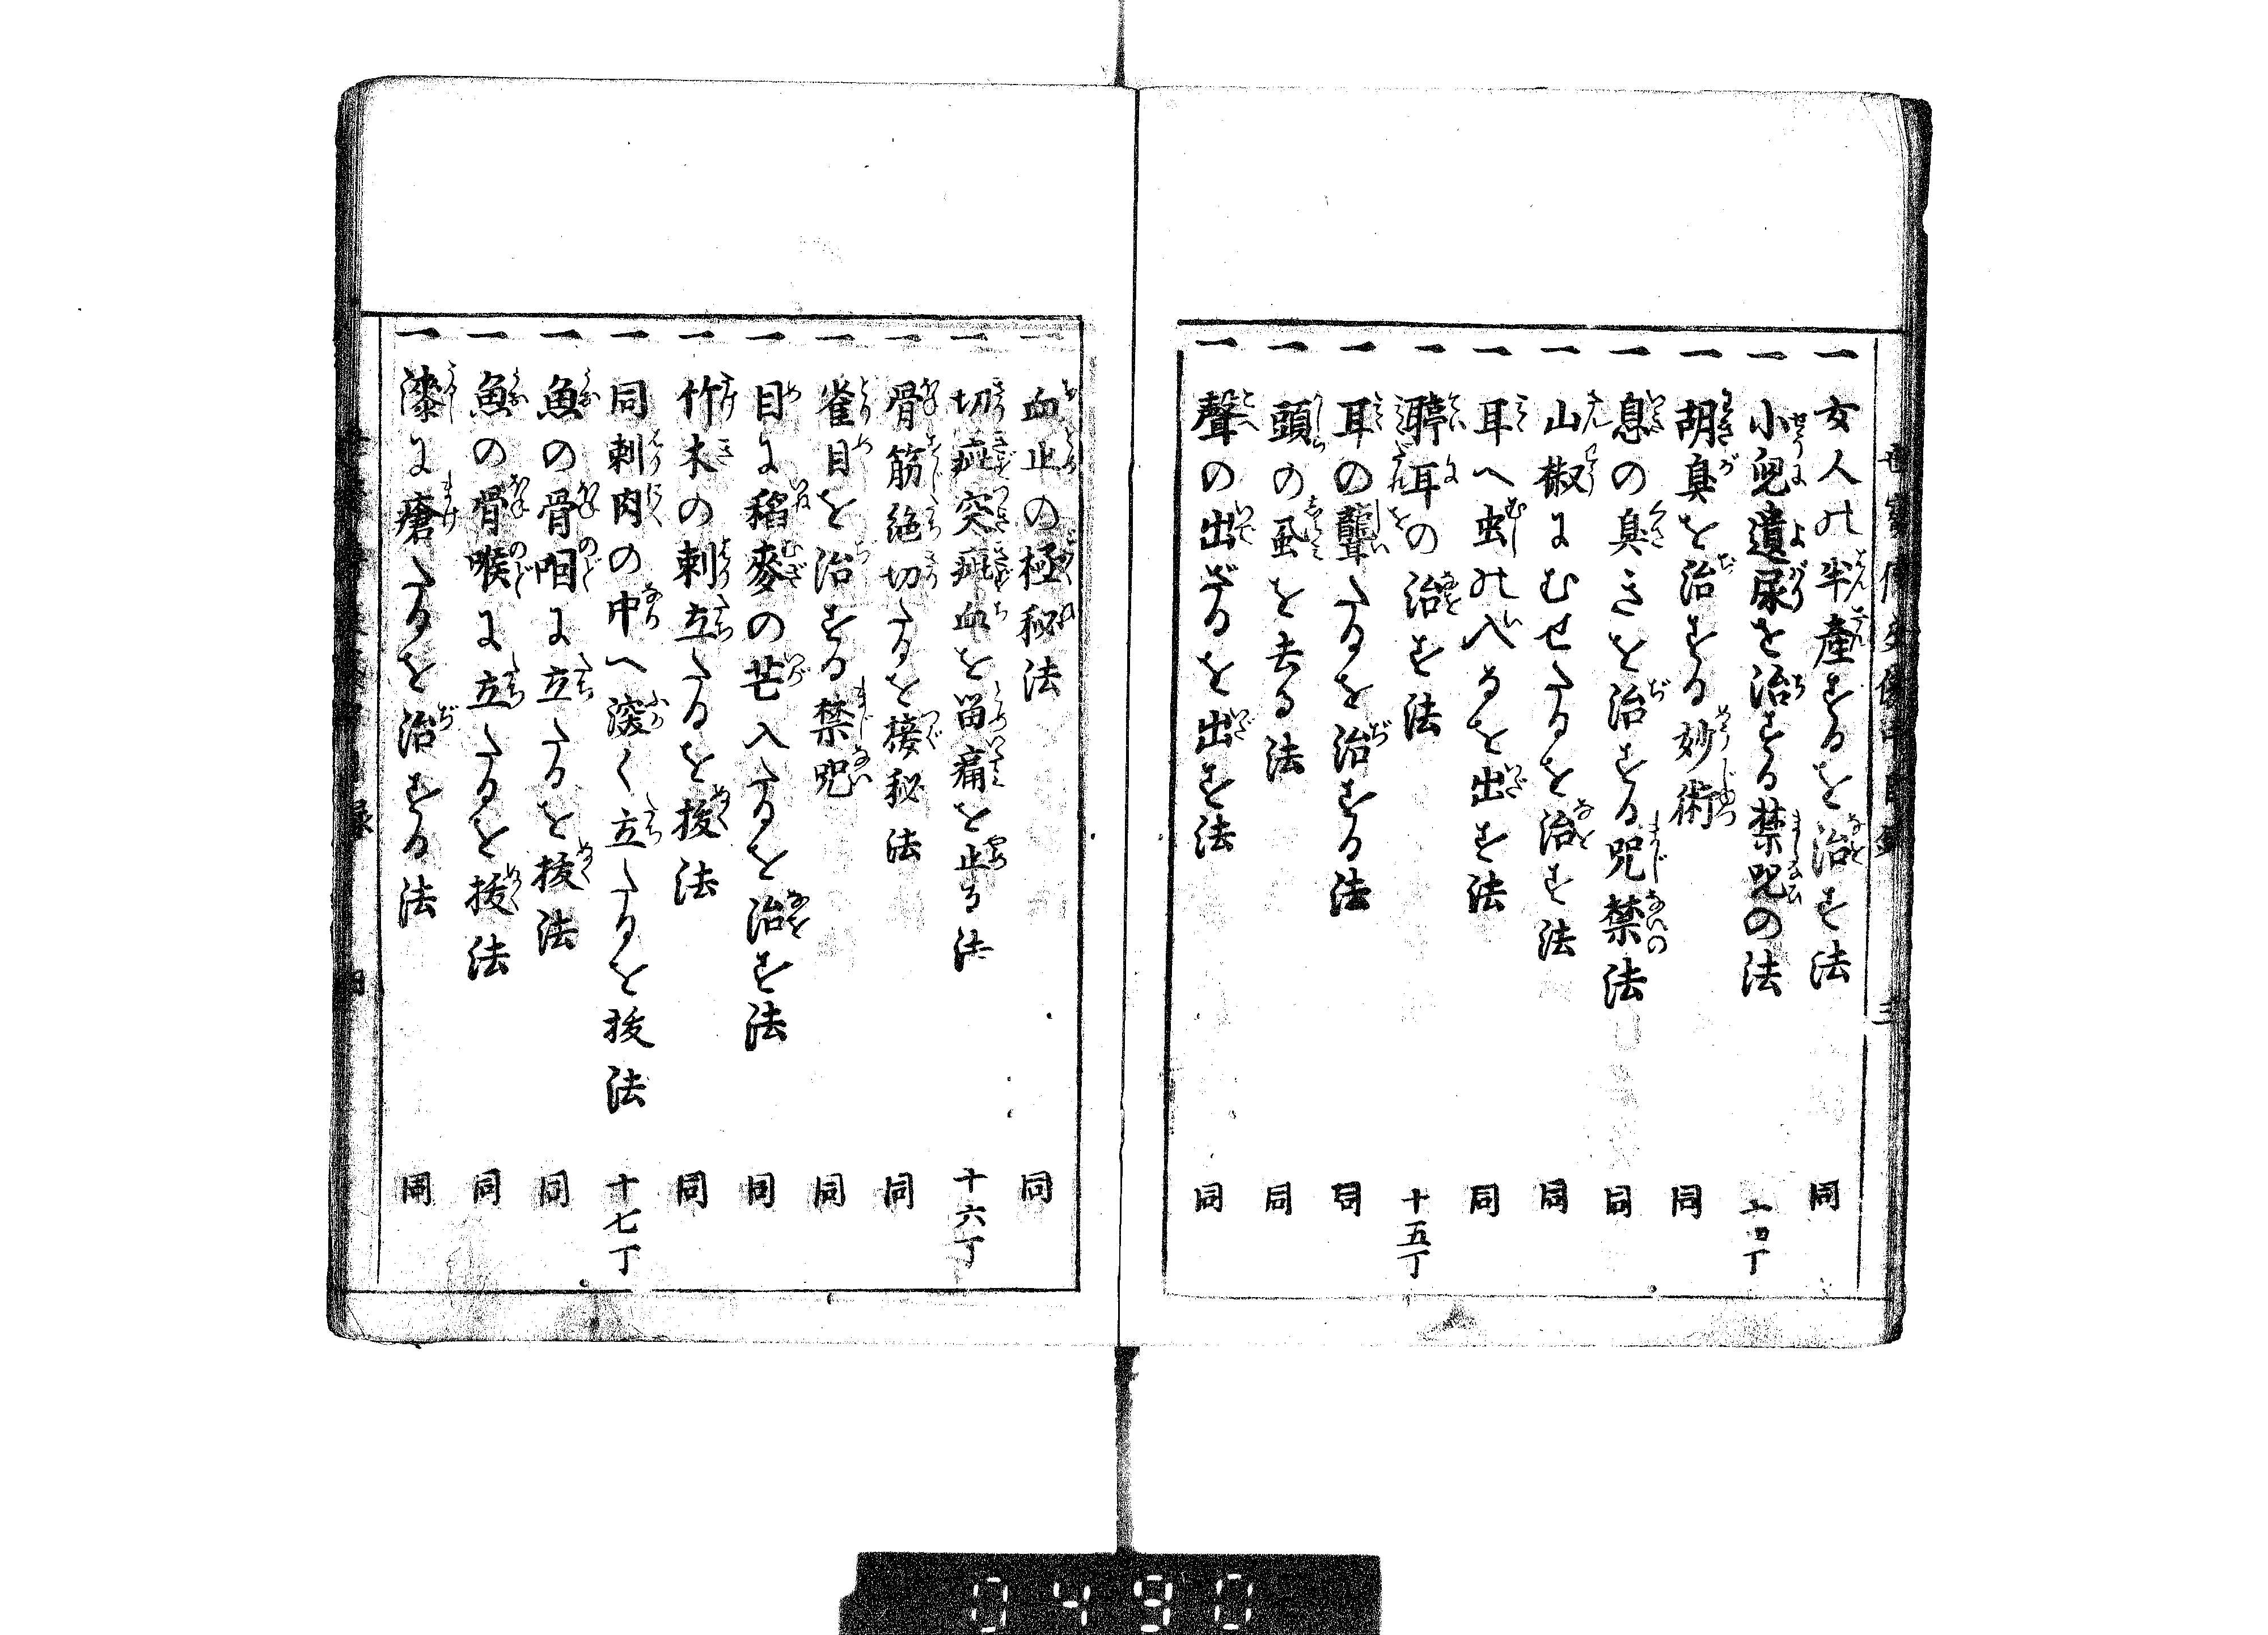 一 女人の半産するを治す法 同
一 小児遺尿を治する禁呪の法 十四丁
一 胡臭を治する妙術 同
一 息の臭きを治する呪禁法 同
一 山椒にむせたるを治す法 同
一 耳へ虫の入るを出す法 同
一 聤耳の治を法 十五丁
一 耳の聾たるを治する法 同
一 頭の虱を去る法 同
一 聲の出ざるを出す法 同
一 血止の極秘法 同
一 切疵突疵血を留痛を止る法 十六丁
一 骨筋絶切たるを接秘法 同
一 雀目を治する禁呪 同
一 目に稲麥の芒入たるを治す法 同
一 竹木の刺立たるを抜法 同
一 同刺肉の中へ深く立たるを抜法 十七丁
一 魚の骨咽に立たるを抜法 同
一 魚の骨喉に立たるを抜法 同
一 漆に瘡たるを治する法 同
0490